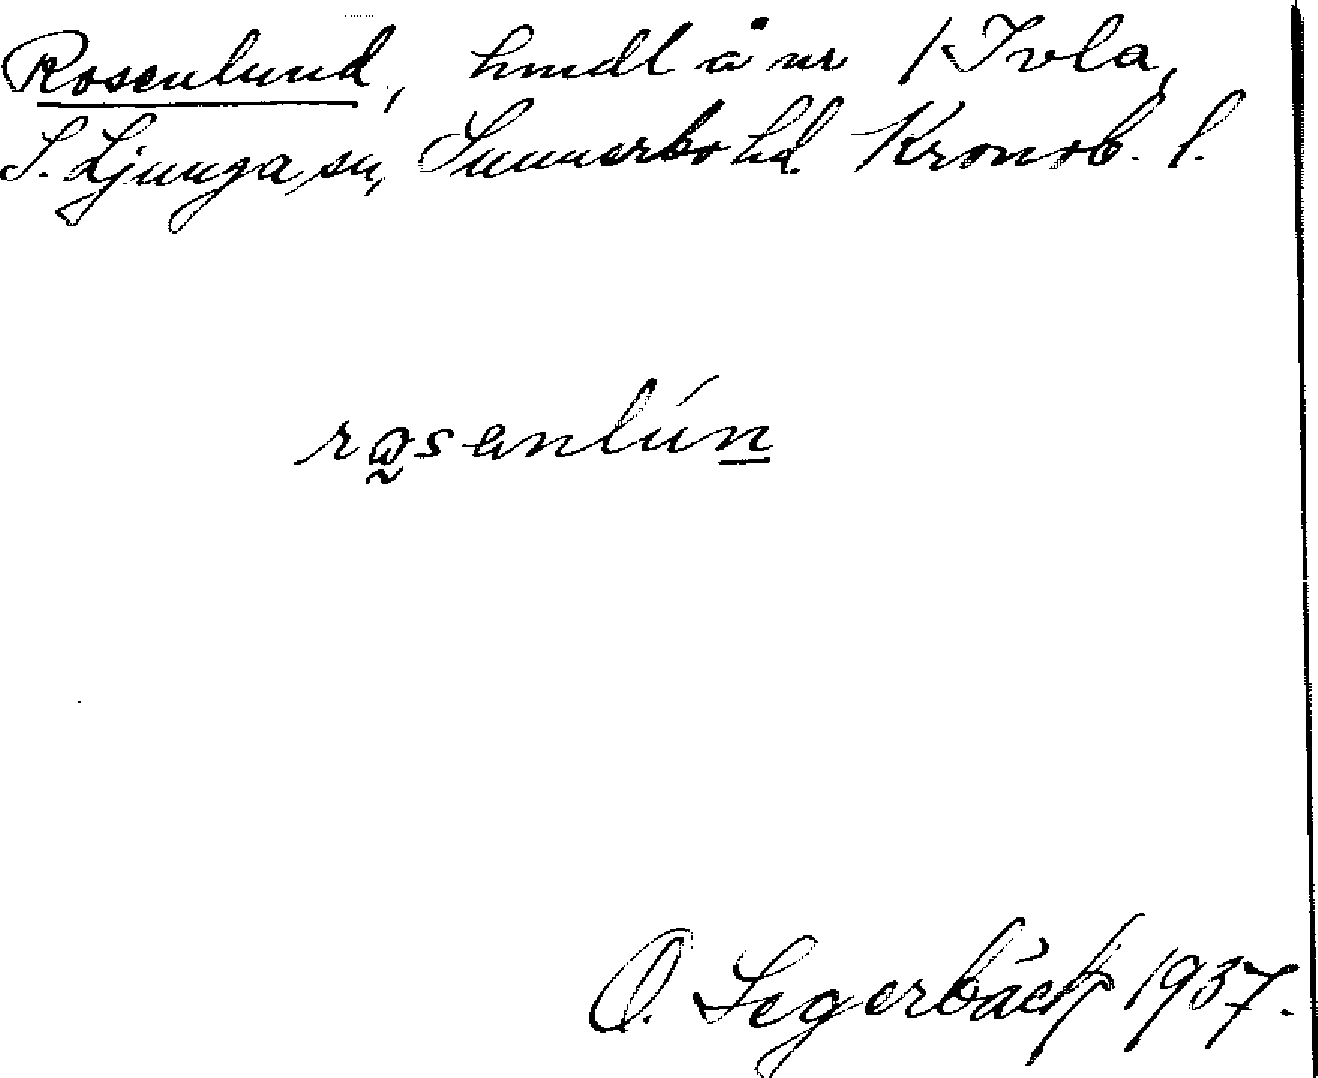 Rosenlund, hmdl å nr 1 Ivla,
S. Ljunga sn, Sunnerbo hd. Kronob. l.
rosenlún
O. Segerbäck 1937.